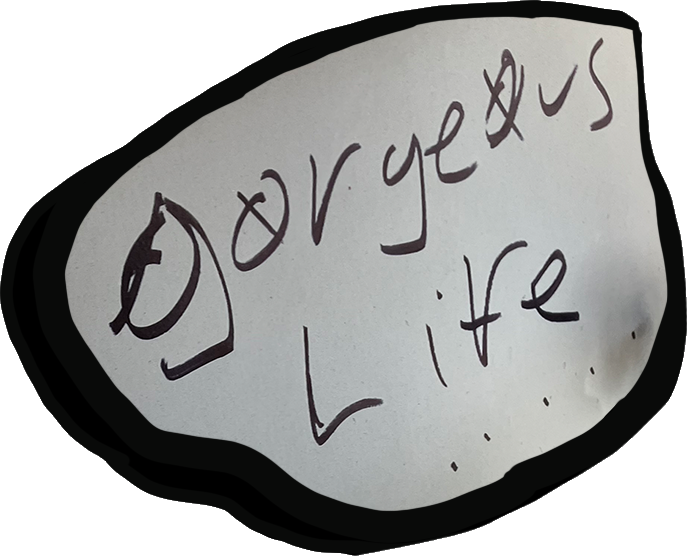 gorgeous
Life
.....